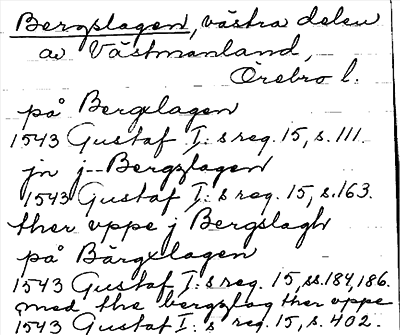 Bergslagen, västra delen
av Västmanland,
Örebro l.
på Bergxlagen
1543 Gustaf I:s reg. 15, s. 111.
jn j--Bergzlagen
1543 Gustaf I:s reg. 15, s. 163.
ther vppe j Bergslagh
på Bärgxlagen
1543 Gustaf I:s reg. 15, ss. 184, 186.
med the bergzlag ther vppe
1543 Gustaf I:s reg. 15, s. 402.